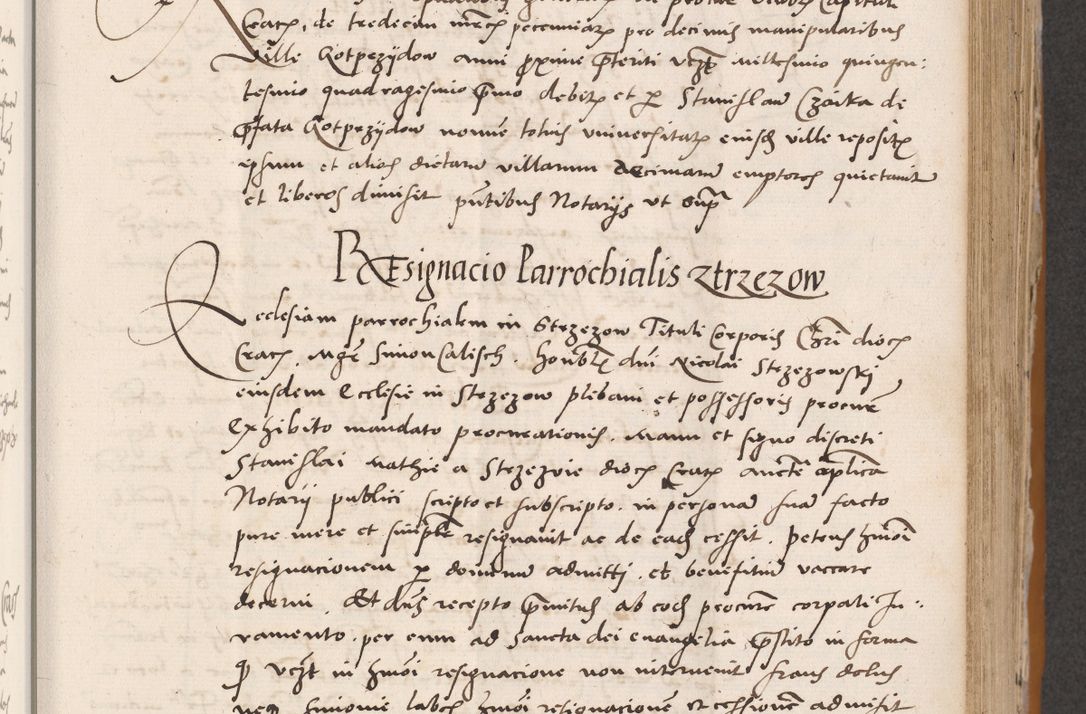 Cracz, de tredecim mrcz pecuniarz pro decimis manipularibus
Ville Kotprzÿdow anni proxime preteriti vczt Millesimo quingen:
tesimo quadragesimo primo debitz et per Stanislaw Czaika de
prefata Kotprzÿdow nomine totius universitatz eiusdz ville repositz
ipsum et alios dictarum villarum decimarum emptores quietavit
et liberos dimisit presentibus Notarÿs ut supra
REsignacio Parrochialis Ztrzezow
Ecclesiam parrochialem in Strzezow Tituli Corporis Christi diocz
Cracz, Mgr Simon Calisch, honorabilis dni Nicolai Strzezowski
eiusdem Ecclesie in Strzezow plebani et possessoris procur
Exhibito mandato procurationis, Manu et signo discreti
Stanislai Mathie a Strzezvie diocz Cracz aucte aplica
Notarii publici scripto et subscripto, in personam suam facto
pure mere et simplr resignavit ac de eadz cessit, Petens hmoi
resignacionem per dominum admitti, et benefitium vaccare
decerni, Et dns recepto primitus ab eodz procure corpali Ju:
ramento, per eum ad Sancta dei evangelia, prestito in forma
Quod vczt in hmoi resignacione non intervenit fraus dolus
neqz Simonie labes hmoi resignacione et cessione admisit